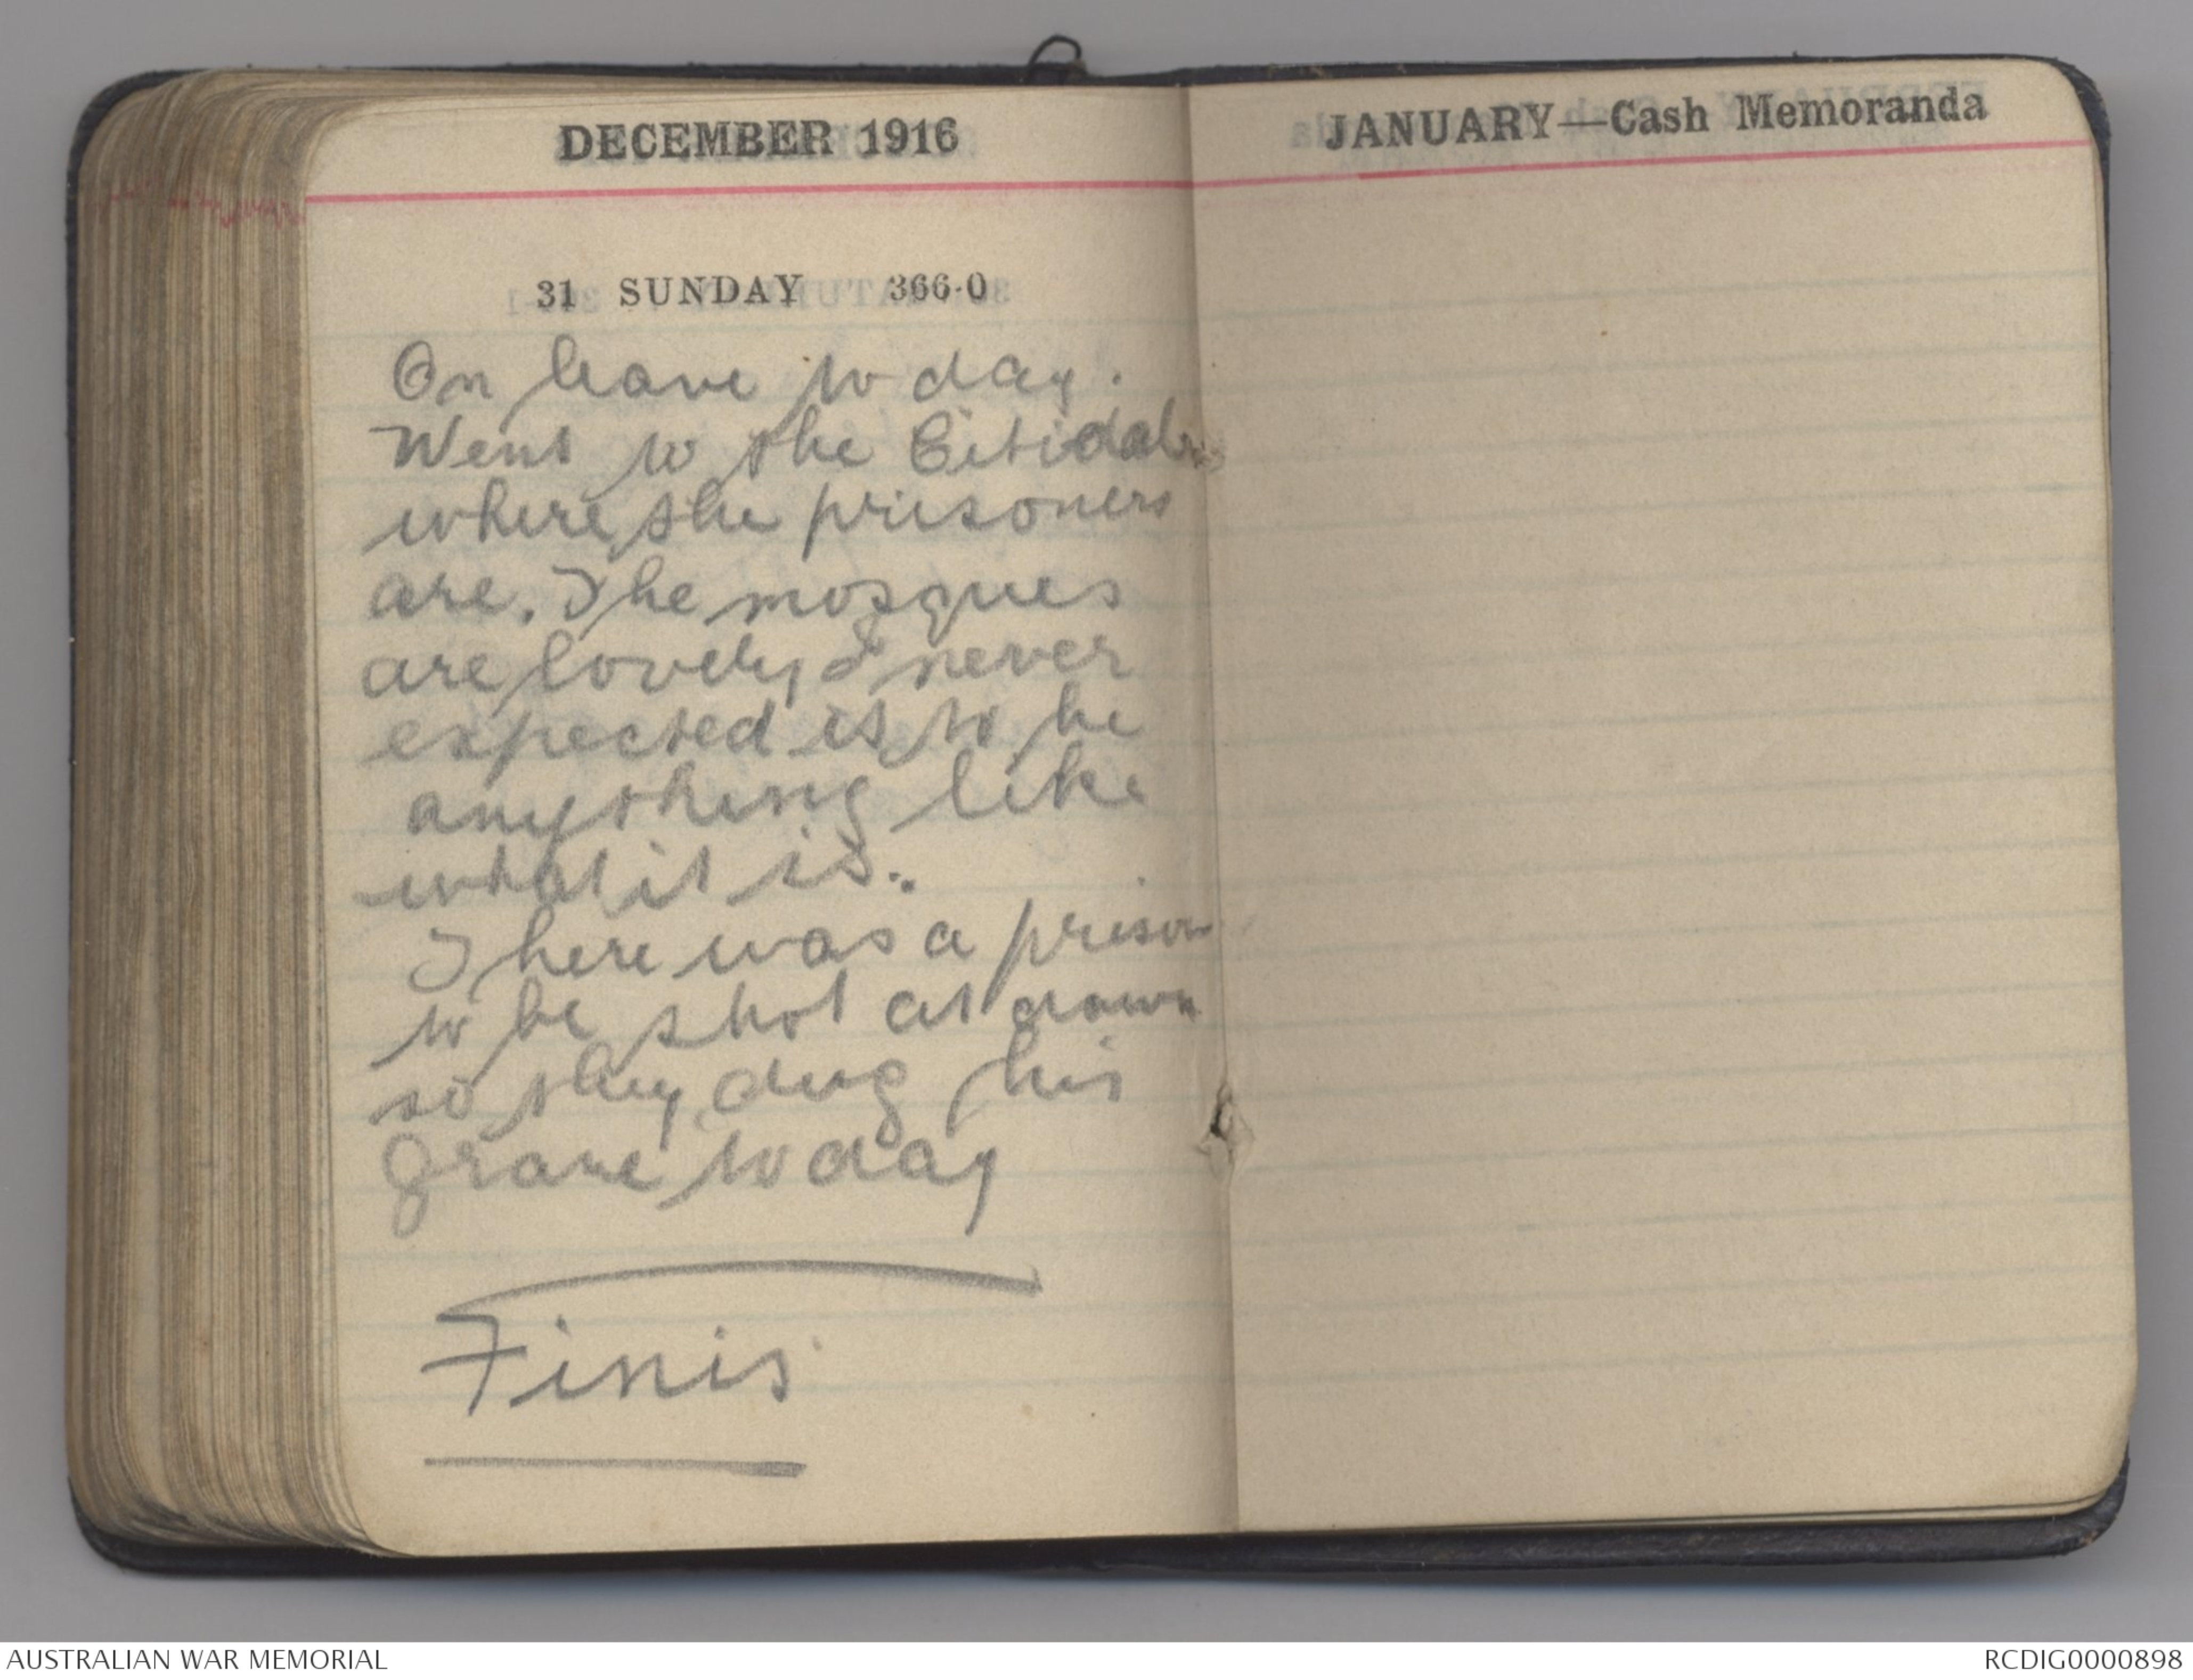 DECEMBER 1916
31 SUNDAY 366-0
On leave to day.
Went to the Citidal
where the prisoners
are. The mosques
are lovely I never
expected it to be
anything like
what it is.
There was a prison
to be shot at dawn
so they dug his
grave to day
Finis
JANUARY—Cash Memoranda
AUSTRALIAN WAR MEMORIAL
RCDIG0000898